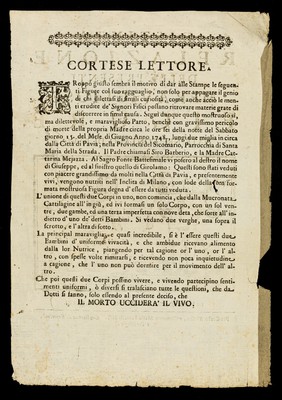 CORTESE LETTORE.
TRoppo giusto sembra il motivo di dar alle Stampe le seguen-
ti Figure col suo ragguaglio, non solo per appagare il genio
di chi dilettasi di simili curiosità, come anche acciò le men-
ti erudite de' Signori Fisici possano ritrovare materie grate di
discorrere in simil causa. Seguì dunque questo mostruosissi-
mo dilettevole, e maraviglioso Parto, benchè con gravissimo pericolo
di morte della propria Madre circa le ore sei della notte del Sabbato
giorno 15. del Mese di Giugno Anno 1748. lungi due miglia in circa
dalla Città di Pavia; nella Provincia del Siccomario, Parrocchia di Santa
Maria della Strada. Il Padre chiamasi Siro Barberio, e la Madre Cat-
tarina Mejazza. Al Sagro Fonte Battesimale vi posero al destro il nome
di Giuseppe, ed al sinistro quello di Girolamo: Questi sono stati veduti
con piacere grandissimo da molti nella Città di Pavia, e presentemente
vivi, vengono nutriti nell' Inclita di Milano, con lode della ben for-
mata mostruosa Figura degna d' essere da tutti veduta.
L' unione di questi due Corpi in uno, non comincia, che dalla Mucronata
Cartilagine all' in giù, ed ivi formasi un solo Corpo, con un sol ven-
tre, due gambe, ed una terza imperfetta con nove deta, che sorte all' in-
dietro d' uno de' detti Bambini. Si vedano due verghe, una sopra il
scroto, e l' altra di sotto.
La principal maraviglia, e quasi incredibile, si è l' essere questi due
Bambini d' uniforme vivacità, e che ambidue ricevano alimento
dalla lor Nutrice, piangendo per tal cagione or l' uno, or l' al-
tro, con spesse volte rimirarsi, e ricevendo non poca inquietudine
a cagione, che l' uno non può dormire per il movimento dell' al-
tro.
Che poi questi due Corpi possino vivere, e vivendo partecipino senti-
menti uniformi, ò diversi si tralasciano tutte le questioni, che da
Dotti si fanno, solo essendo al presente deciso, che
IL MORTO UCCIDERA' IL VIVO.